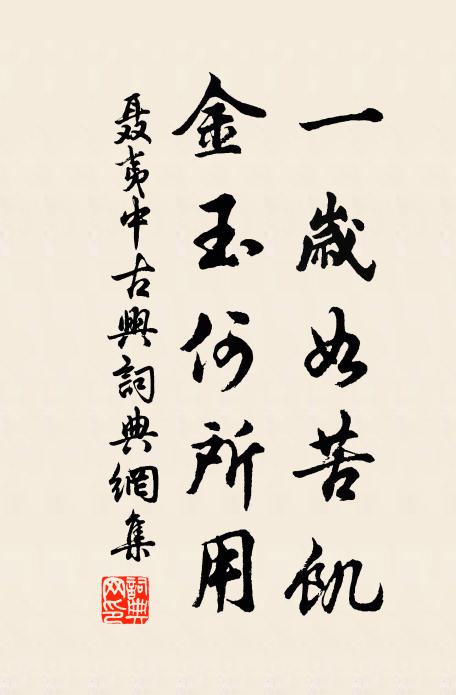 一歲如苦飢
金玉何所用
聶夷中古興詞典網集
詞典網印